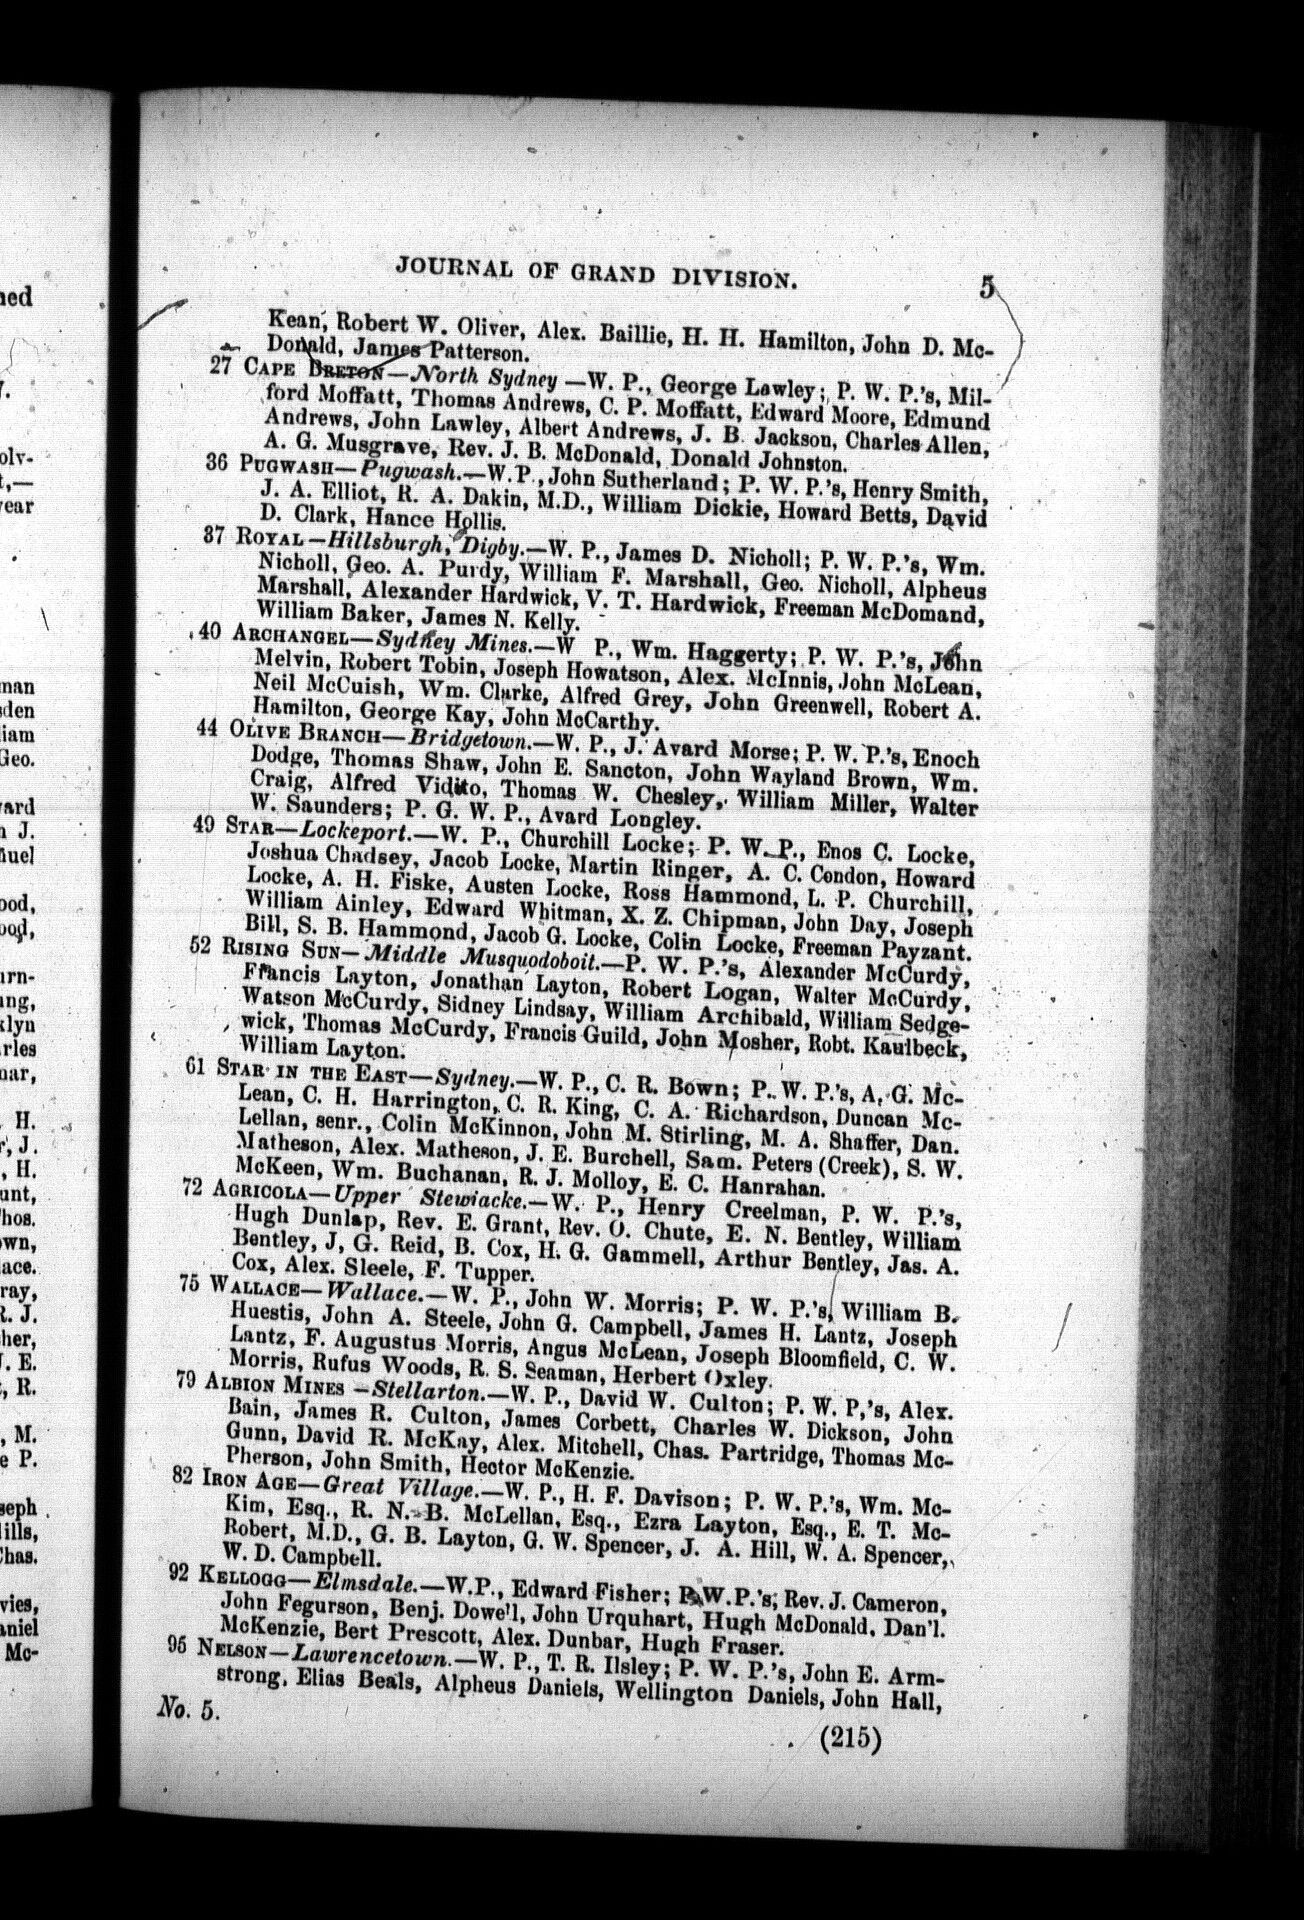 JOURNAL OF GRAND DIVISION. 5
Kean, Robert W. Oliver, Alex. Baillie, H. H. Hamilton, John D. Mc-
Donald, James Patterson.
27 CAPE BRETON—North Sydney —W. P., George Lawley; P. W. P.'s, Mil-
ford Moffatt, Thomas Andrews, C. P. Moffatt, Edward Moore, Edmund
Andrews, John Lawley, Albert Andrews, J. B. Jackson, Charles Allen,
A. G. Musgrave, Rev. J. B. McDonald, Donald Johnston.
36 PUGWASH—Pugwash.—W.P., John Sutherland; P. W. P.'s, Henry Smith,
J. A. Elliot, R. A. Dakin, M.D., William Dickie, Howard Betts, David
D. Clark, Hance Hollis.
37 ROYAL—Hillsburgh, Digby.—W. P., James D. Nicholl; P. W. P.'s, Wm.
Nicholl, Geo. A. Purdy, William F. Marshall, Geo. Nicholl, Alpheus
Marshall, Alexander Hardwick, V. T. Hardwick, Freeman McDomand,
William Baker, James N. Kelly.
40 ARCHANGEL—Sydney Mines.—W P., Wm. Haggerty; P. W. P.'s, John
Melvin, Robert Tobin, Joseph Howatson, Alex. McInnis, John McLean,
Neil McCuish, Wm. Clarke, Alfred Grey, John Greenwell, Robert A.
Hamilton, George Kay, John McCarthy.
44 OLIVE BRANCH—Bridgetown.—W. P., J. Avard Morse; P. W. P.'s, Enoch
Dodge, Thomas Shaw, John E. Sancton, John Wayland Brown, Wm.
Craig, Alfred Vidito, Thomas W. Chesley, William Miller, Walter
W. Saunders; P. G. W. P., Avard Longley.
49 STAR—Lockeport.—W. P., Churchill Locke; P. W. P., Enos C. Locke,
Joshua Chadsey, Jacob Locke, Martin Ringer, A. C. Condon, Howard
Locke, A. H. Fiske, Austen Locke, Ross Hammond, L. P. Churchill,
William Ainley, Edward Whitman, X. Z. Chipman, John Day, Joseph
Bill, S. B. Hammond, Jacob G. Locke, Colin Locke, Freeman Payzant.
52 RISING SUN—Middle Musquodoboit.—P. W. P.'s, Alexander McCurdy,
Francis Layton, Jonathan Layton, Robert Logan, Walter McCurdy,
Watson McCurdy, Sidney Lindsay, William Archibald, William Sedge-
wick, Thomas McCurdy, Francis Guild, John Mosher, Robt. Kaulbeck,
William Layton.
61 STAR IN THE EAST—Sydney.—W. P., C. R. Bown; P. W. P.'s, A. G. Mc-
Lean, C. H. Harrington, C. R. King, C. A. Richardson, Duncan Mc-
Lellan, senr., Colin McKinnon, John M. Stirling, M. A. Shaffer, Dan.
Matheson, Alex. Matheson, J. E. Burchell, Sam. Peters (Creek), S. W.
McKeen, Wm. Buchanan, R. J. Molloy, E. C. Hanrahan.
72 AGRICOLA—Upper Stewiacke.—W. P., Henry Creelman, P. W. P.'s,
Hugh Dunlap, Rev. E. Grant, Rev. O. Chute, E. N. Bentley, William
Bentley, J, G. Reid, B. Cox, H. G. Gammell, Arthur Bentley, Jas. A.
Cox, Alex. Sleele, F. Tupper.
75 WALLACE—Wallace.—W. P., John W. Morris; P. W. P.'s, William B.
Huestis, John A. Steele, John G. Campbell, James H. Lantz, Joseph
Lantz, F. Augustus Morris, Angus McLean, Joseph Bloomfield, C. W.
Morris, Rufus Woods, R. S. Seaman, Herbert Oxley.
79 ALBION MINES—Stellarton.—W. P., David W. Culton; P. W. P,'s, Alex.
Bain, James R. Culton, James Corbett, Charles W. Dickson, John
Gunn, David R. McKay, Alex. Mitchell, Chas. Partridge, Thomas Mc-
Pherson, John Smith, Hector McKenzie.
82 IRON AGE—Great Village.—W. P., H. F. Davison; P. W. P.'s, Wm. Mc-
Kim, Esq., R. N. B. McLellan, Esq., Ezra Layton, Esq., E. T. Mc-
Robert, M.D., G. B. Layton, G. W. Spencer, J. A. Hill, W. A. Spencer,
W. D. Campbell.
92 KELLOGG—Elmsdale.—W.P., Edward Fisher; P.W.P.'s; Rev. J. Cameron,
John Fegurson, Benj. Dowe'l, John Urquhart, Hugh McDonald, Dan'l.
McKenzie, Bert Prescott, Alex. Dunbar, Hugh Fraser.
95 NELSON—Lawrencetown.—W. P., T. R. Ilsley; P. W. P.'s, John E. Arm-
strong, Elias Beals, Alpheus Daniels, Wellington Daniels, John Hall,
No. 5.
(215)